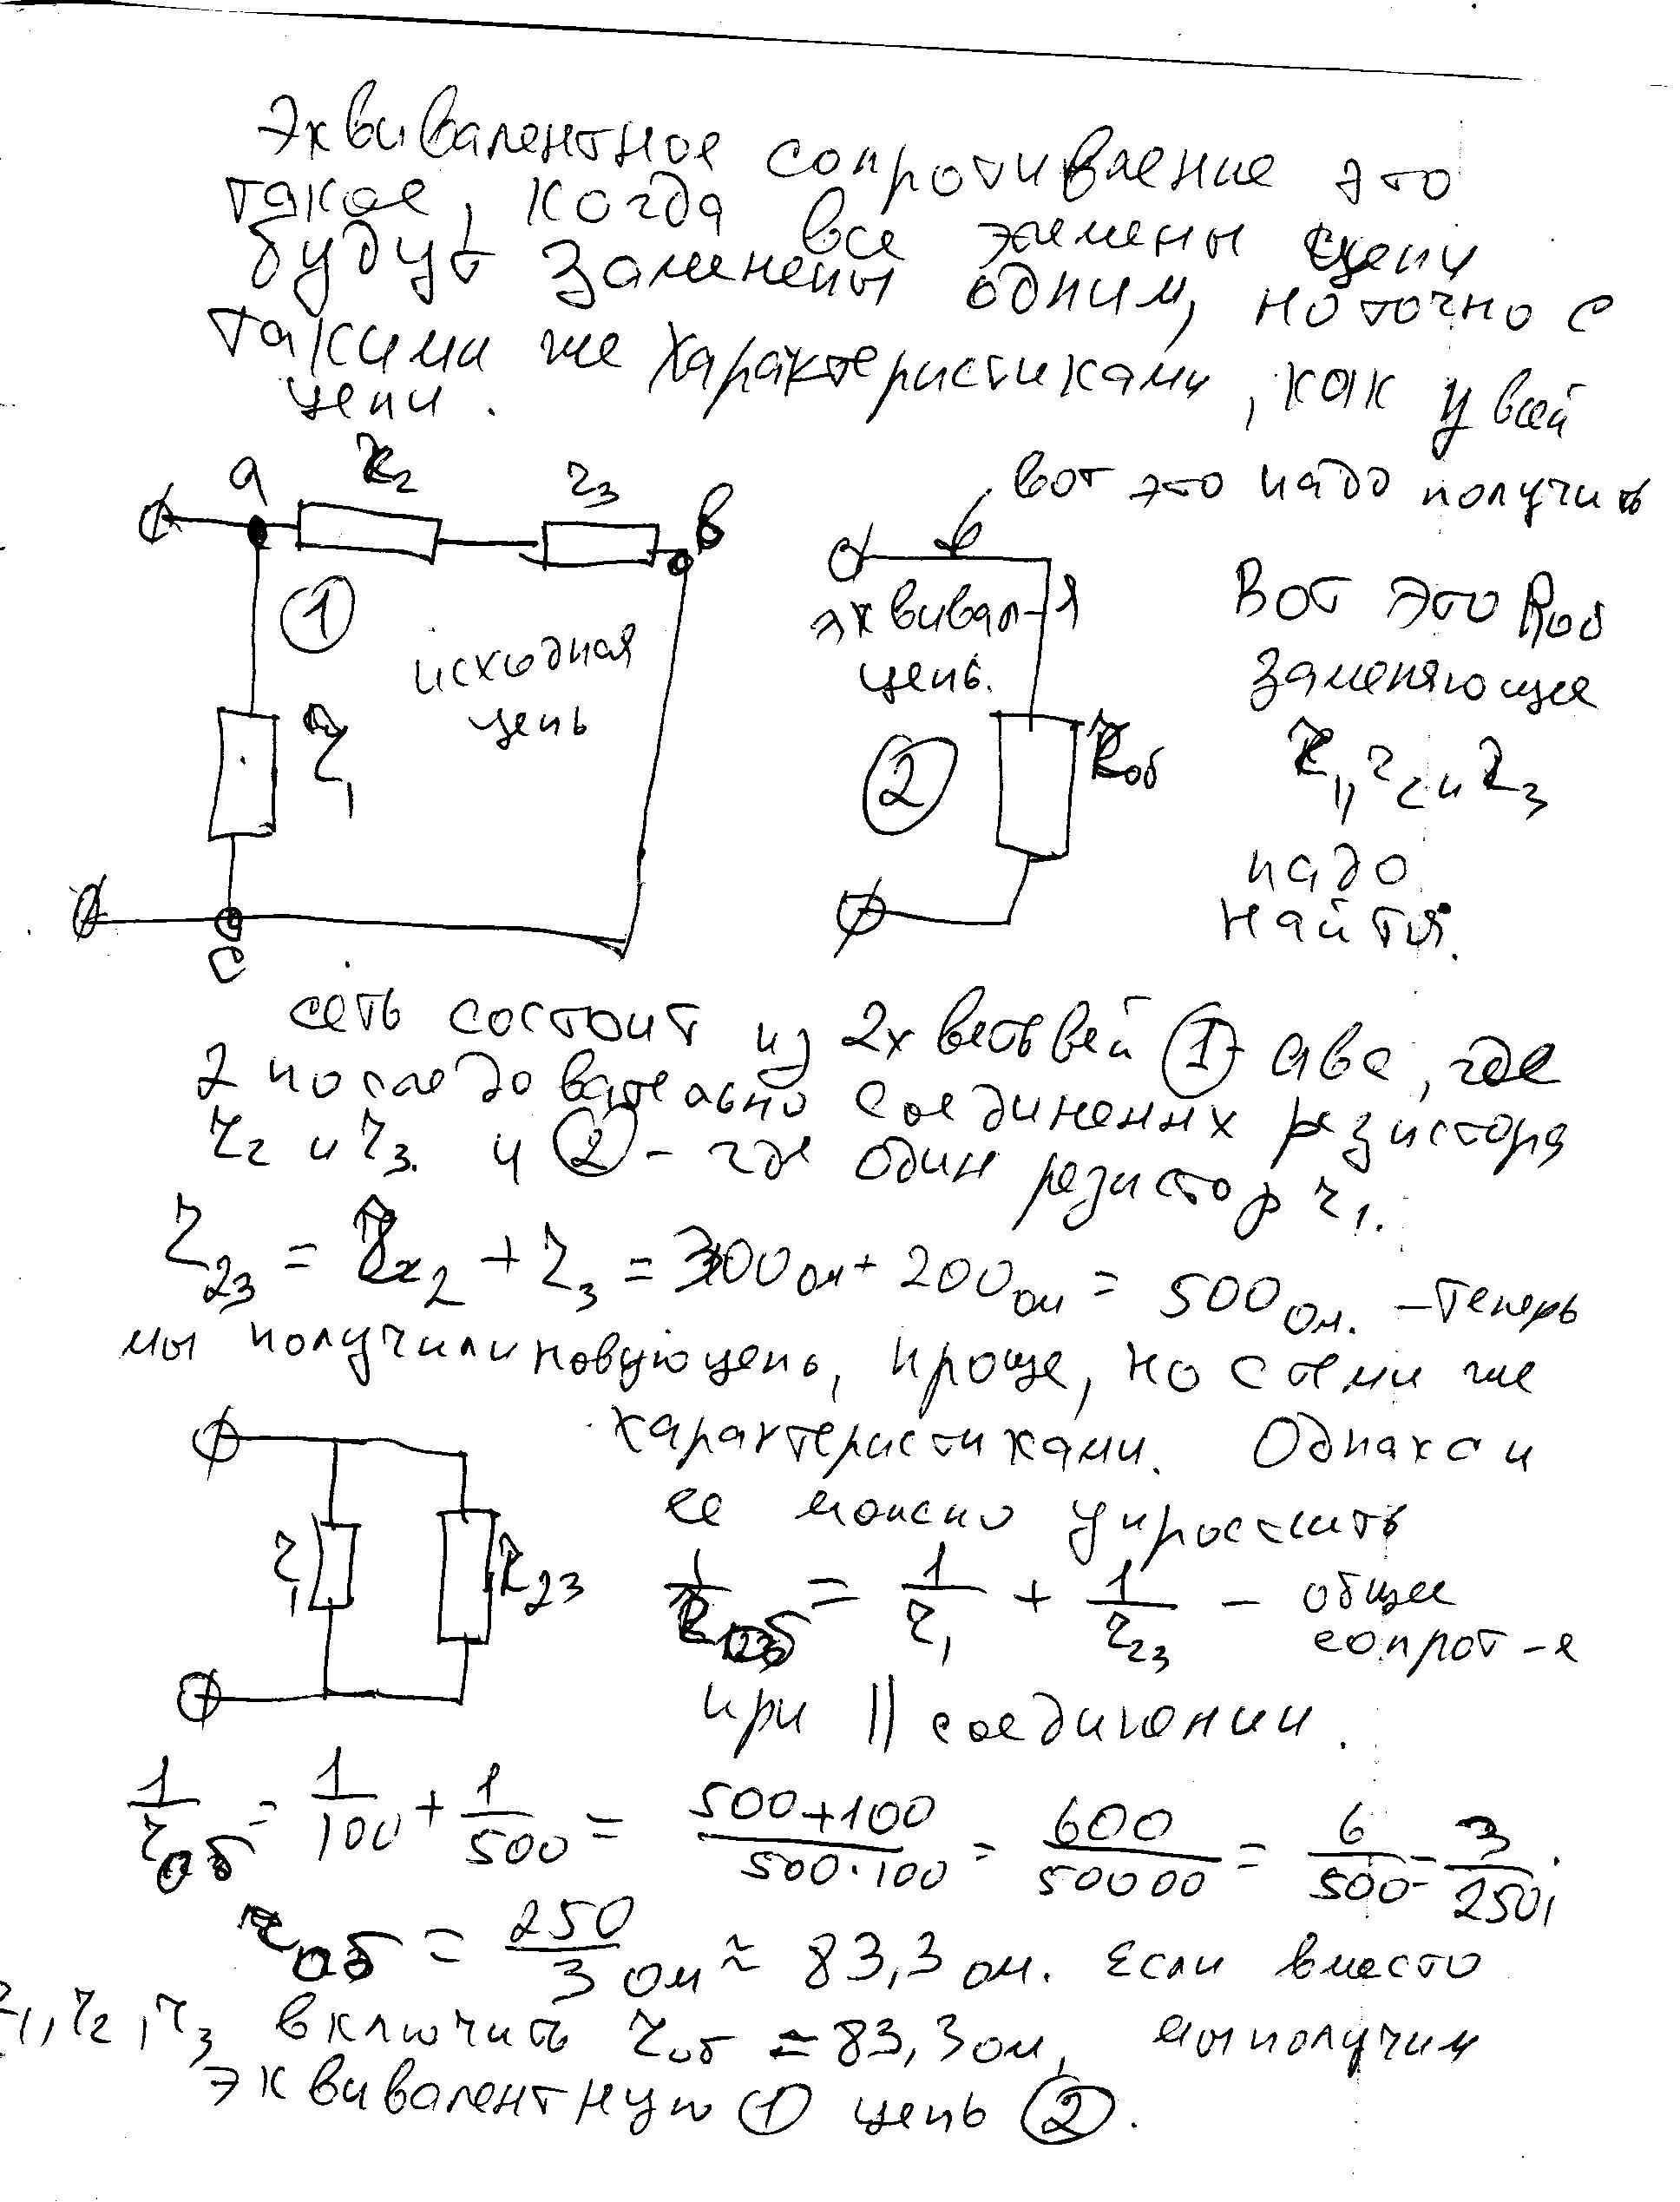 Эквивалентное сопротивление это
такое, когда все элемены цепи
будут заменены одним, но точно с
такими же характеристиками, как у всей
цепи.
вот это надо получить
a r2 r3 в
① исходная
цепь
r1
c
эквивал-я
цепь.
② Rоб
Вот это Rоб
заменяющее
r1, r2 и r3
надо
найти.
сеть состоит из 2х ветьвей ① авс, где
2 последовательно соединенных резистора
r2 и r3. и ② - где один резистор r1.
r23 = r2 + r3 = 300 ом + 200 ом = 500 Ом. - теперь
мы получили новую цепь, проще, но с теми же
характеристиками. Однако и
ее можно упростить
r1 R23
1/rоб = 1/r1 + 1/r23 - общее
сопрот-е
при || соединении.
1/rоб = 1/100 + 1/500 = 500+100/500·100 = 600/50000 = 6/500 = 3/250;
rоб = 250/3 ом ≈ 83,3 ом. Если вместо
r1, r2, r3 включить rоб = 83,3 ом, мы получим
эквивалентную ① цепь ②.